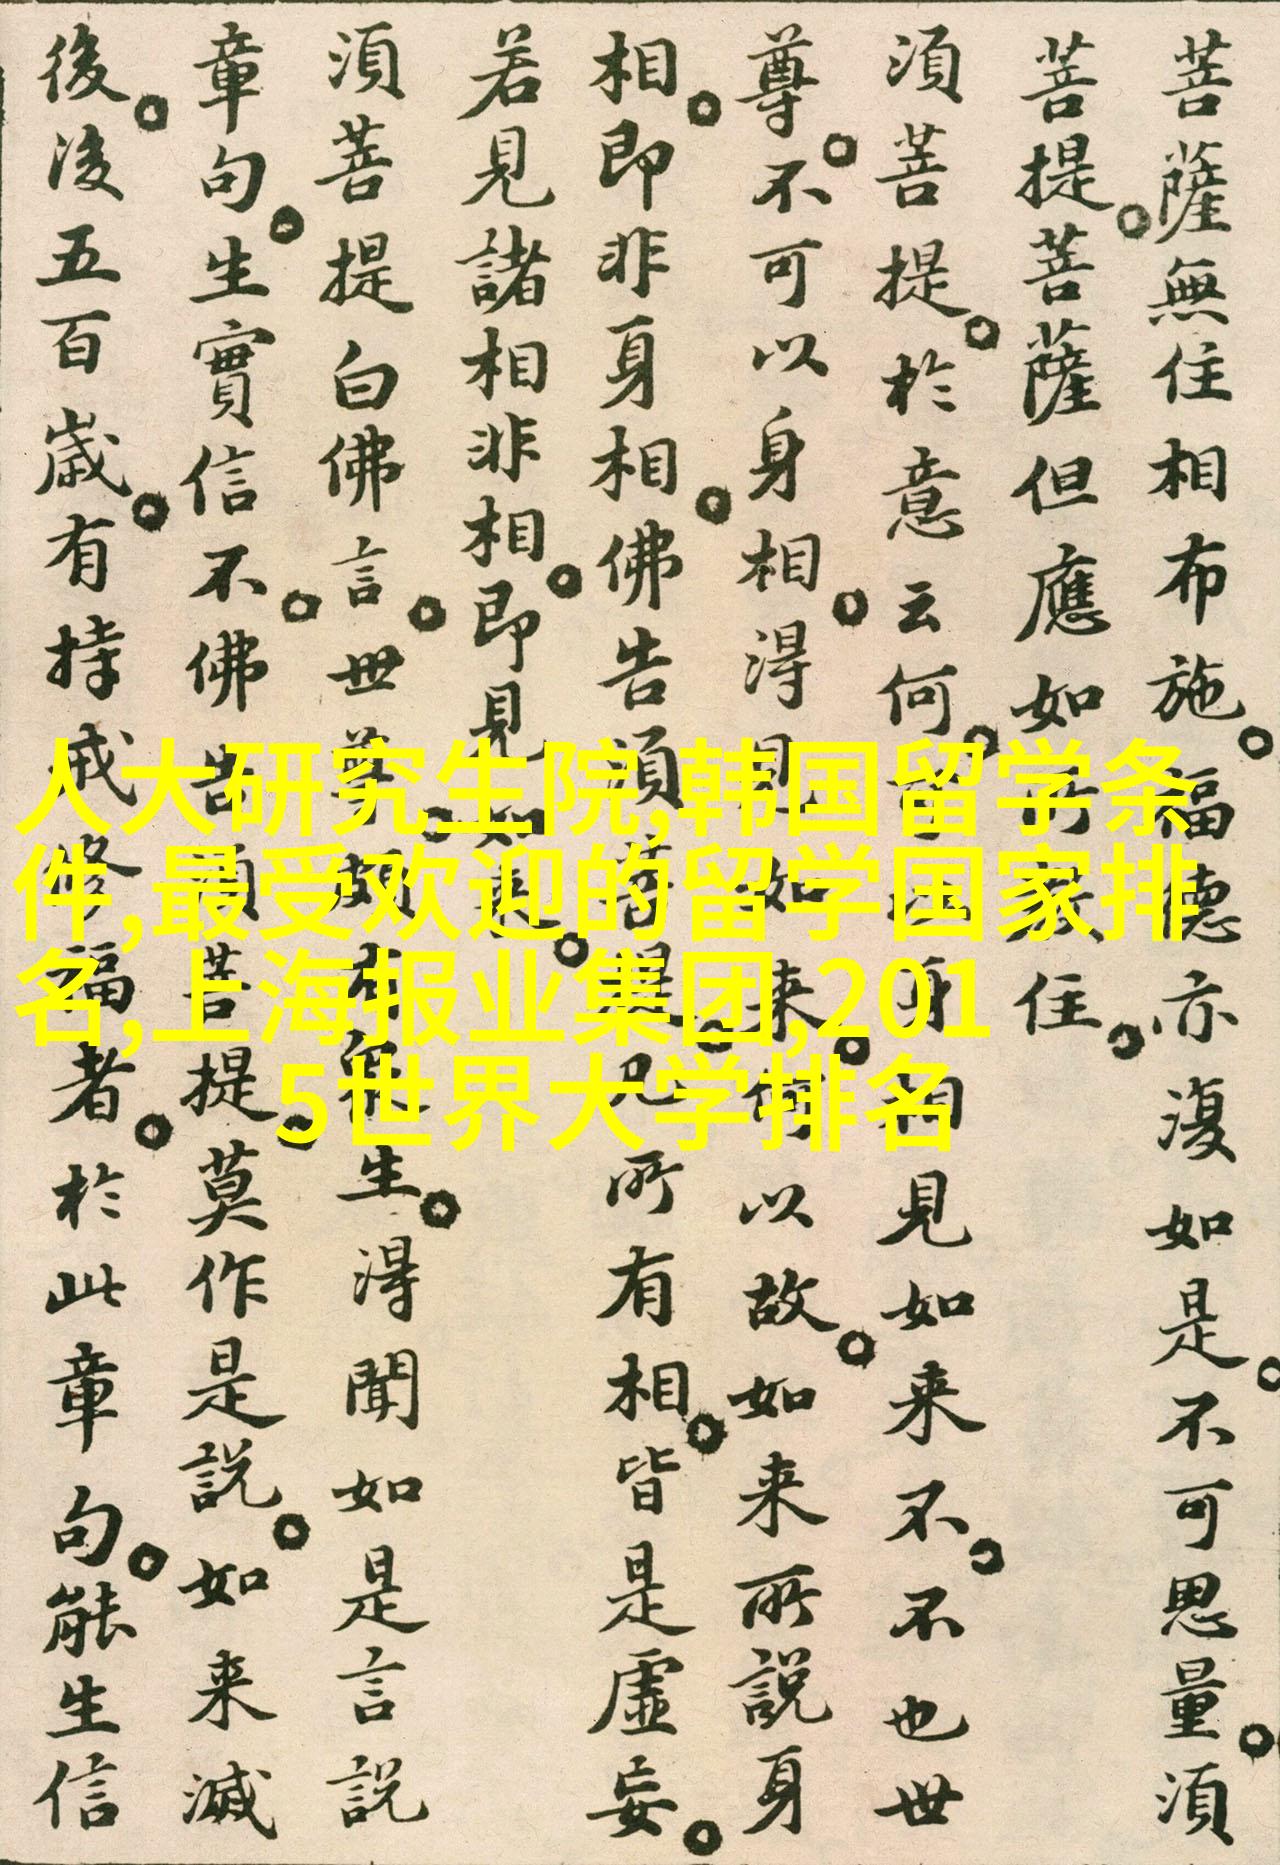 菩薩無住相布施。福德亦復如是。不可思量。須
菩提。菩薩但應如所教住。
須菩提。於意云何。可以身相見如来不。不也世
尊。不可以身相。得見如来。何以故。如来所說身
相。即非身相。佛告須菩提。凡所有相。皆是虛妄。
若見諸相非相。即見如来。
須菩提白佛言。世尊。頗有眾生。得聞如是言說
章句。生實信不。佛告須菩提。莫作是說。如来滅
後。後五百歲。有持戒修福者。於此章句。能生信
人大研究生院,韩国留学条
件,最受欢迎的留学国家排
名,上海报业集团,201
5世界大学排名